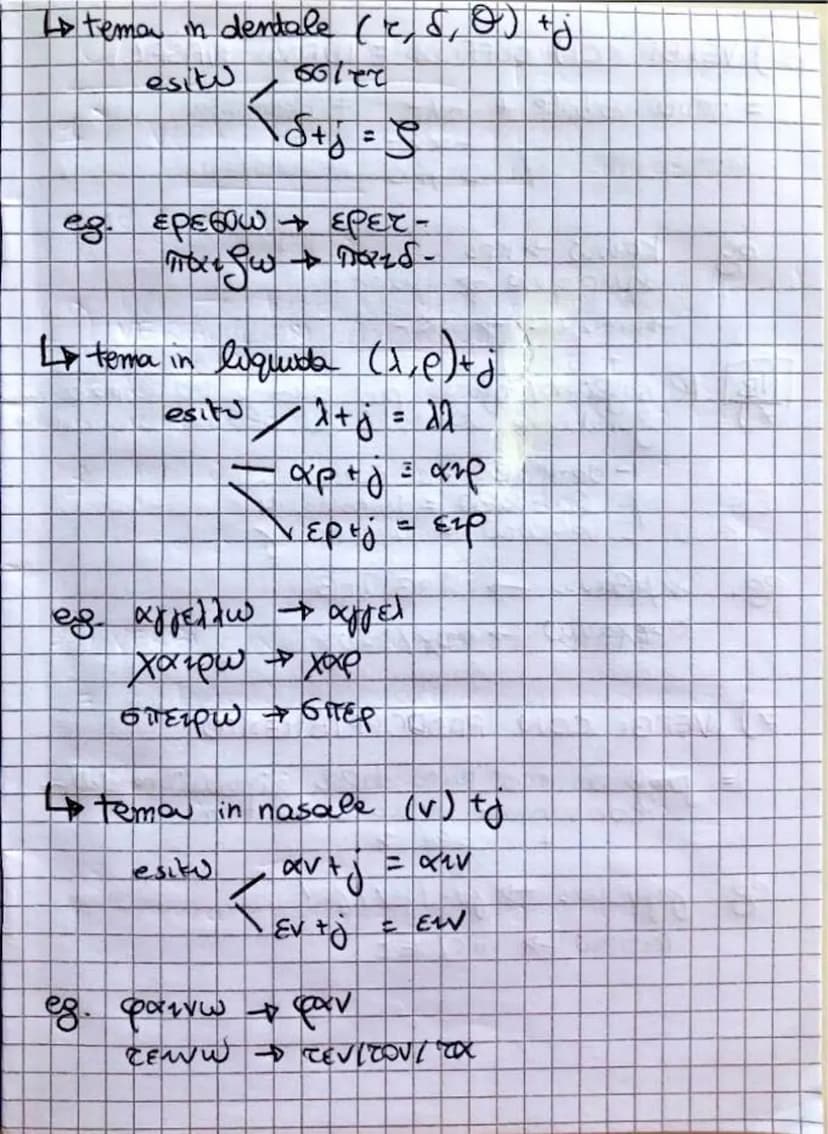 ↳ tema in dentale (τ, δ, θ) +j
esito < σσ/ττ
δ+j = ζ
eg. ερεσσω → ερετ-
παιζω → παιδ-
↳ tema in liquida (λ, ρ)+j
esito λ+j = λλ
αρ+j = αιρ
ερ+j = ειρ
eg. αγγελλω → αγγελ
χαιρω → χαρ
σπειρω → σπερ
↳ tema in nasale (ν) +j
esito < αν+j = αιν
εν+j = ειν
eg. φαινω → φαν
τεινω → τεν/τον/τα